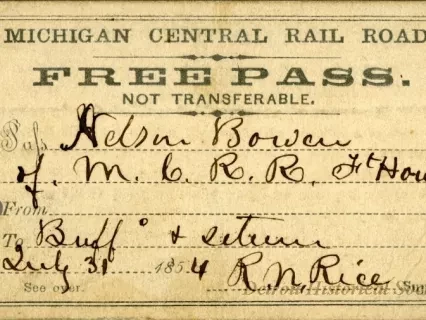 MICHIGAN CENTRAL RAIL ROAD
FREE PASS.
NOT TRANSFERABLE.
Pass Nelson Bowen
of M. C. R. R. Ft Hou
From
To Buff° & return
July 31 1854 R. N. Rice
See over. Detroit Historical Soc (Sup